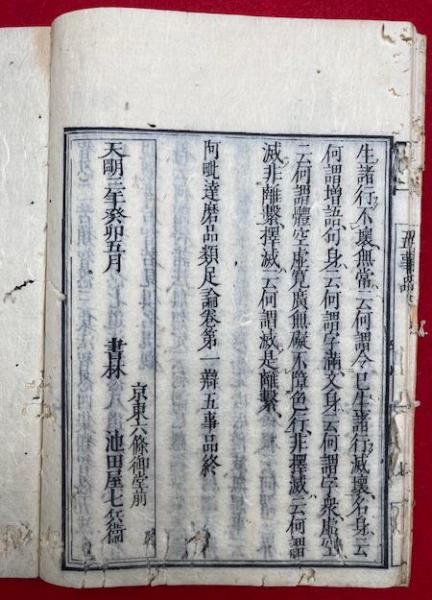 生諸行不壞無常云何謂令已生諸行滅壞名身云
何謂增語句身云何謂字滿文身云何謂字衆虛空
云何謂體空虛寬廣無礙不障色行非擇滅云何謂
滅非離繫擇滅云何謂滅是離繫
阿毗達磨品類足論卷第一辯五事品終
京東六條御堂前
天明三年癸卯五月 書林 池田屋七兵衞
五事論